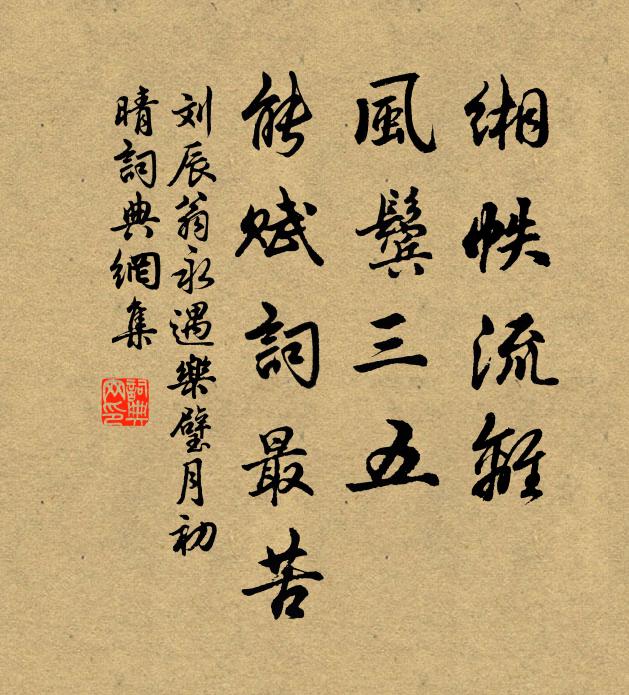 缃帙流離
風鬟三五
能賦詞最苦
刘辰翁永遇樂璧月初
晴詞典網集
詞典
网印